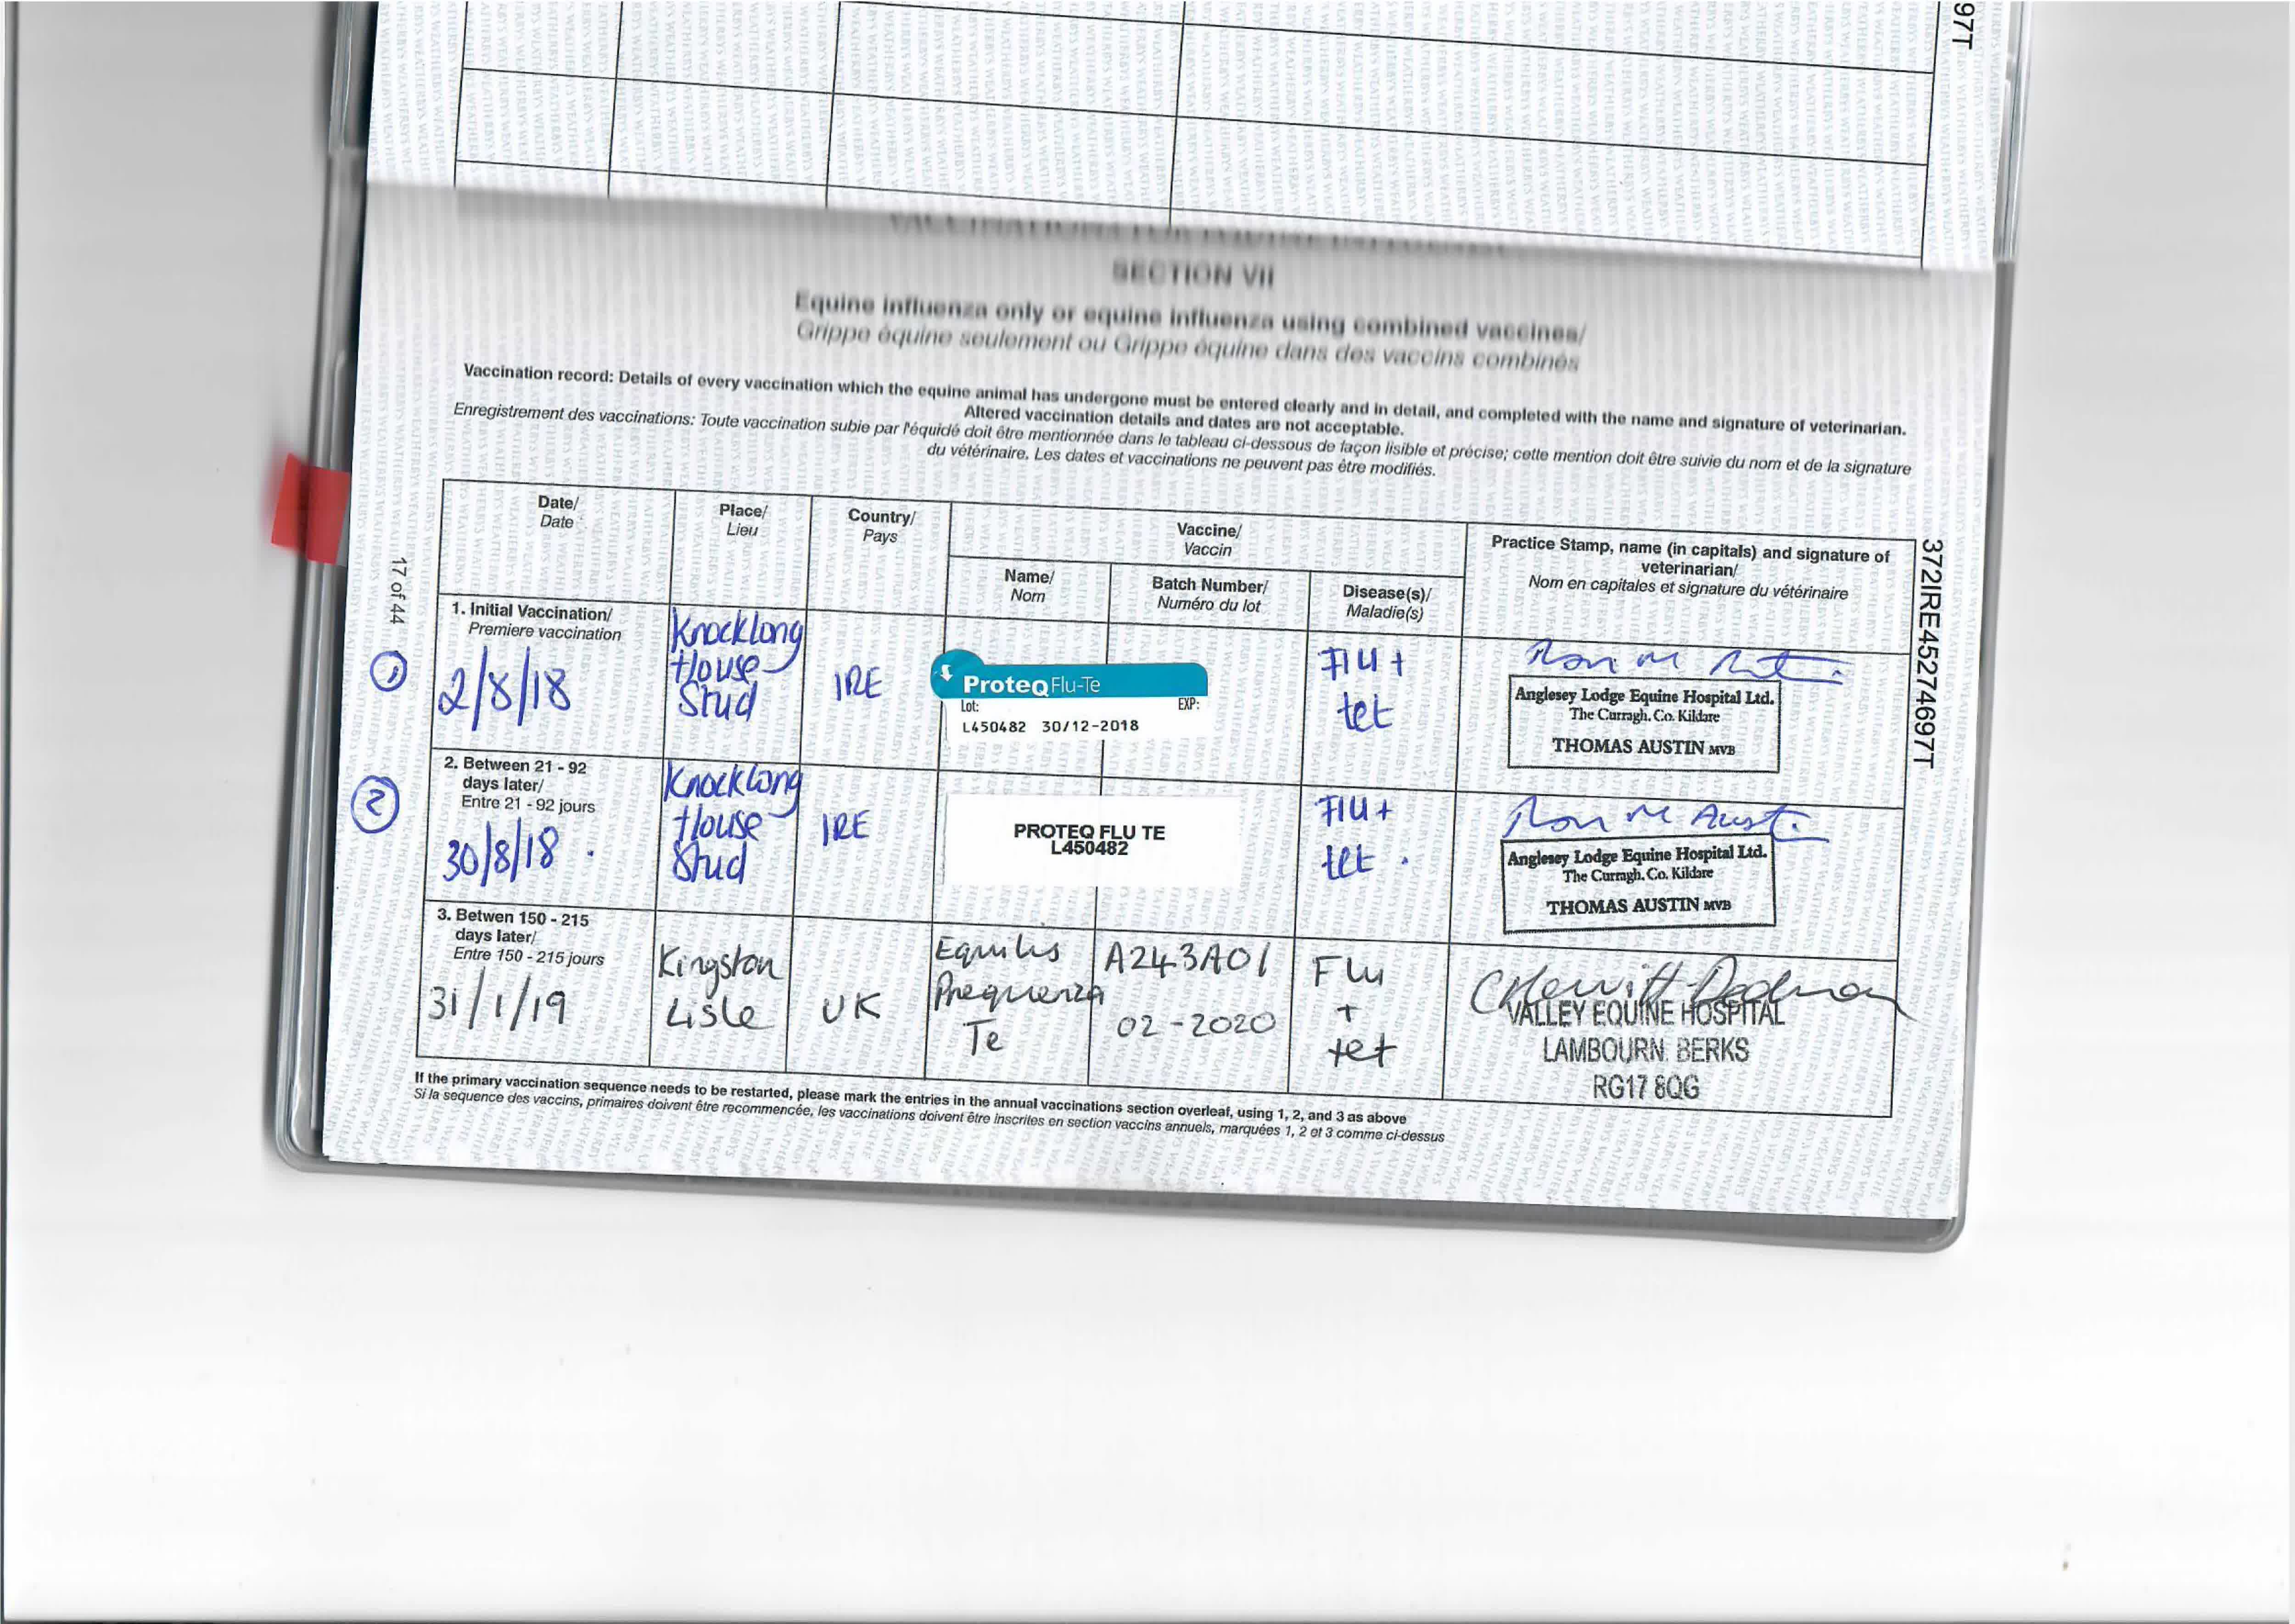 97T
SECTION VII
Equine influenza only or equine influenza using combined vaccines/
Grippe équine seulement ou Grippe équine dans des vaccins combinés
Vaccination record: Details of every vaccination which the equine animal has undergone must be entered clearly and in detail, and completed with the name and signature of veterinarian.
Altered vaccination details and dates are not acceptable.
Enregistrement des vaccinations: Toute vaccination subie par l'équidé doit être mentionnée dans le tableau ci-dessous de façon lisible et précise; cette mention doit être suivie du nom et de la signature
du vétérinaire. Les dates et vaccinations ne peuvent pas être modifiés.
17 of 44
372IRE45274697T
Date/
Date
Place/
Lieu
Country/
Pays
Vaccine/
Vaccin
Name/
Nom
Batch Number/
Numéro du lot
Disease(s)/
Maladie(s)
Practice Stamp, name (in capitals) and signature of
veterinarian/
Nom en capitales et signature du vétérinaire
1
1. Initial Vaccination/
Premiere vaccination
2/8/18
Knocklong
House
Stud
IRE
ProteqFlu-Te
Lot:
EXP:
L450482 30/12-2018
Flu +
tet
Anglesey Lodge Equine Hospital Ltd.
The Curragh. Co. Kildare
THOMAS AUSTIN MVB
2
2. Between 21 - 92
days later/
Entre 21 - 92 jours
30/8/18 .
Knocklong
House
Stud
IRE
PROTEQ FLU TE
L450482
Flu +
tet .
Anglesey Lodge Equine Hospital Ltd.
The Curragh. Co. Kildare
THOMAS AUSTIN MVB
3. Betwen 150 - 215
days later/
Entre 150 - 215 jours
31/1/19
Kingston
Lisle
UK
Equilis
Prequenza
Te
A243A01
02-2020
Flu
+
tet
VALLEY EQUINE HOSPITAL
LAMBOURN. BERKS
RG17 8QG
If the primary vaccination sequence needs to be restarted, please mark the entries in the annual vaccinations section overleaf, using 1, 2, and 3 as above
Si la sequence des vaccins, primaires doivent être recommencée, les vaccinations doivent être inscrites en section vaccins annuels, marquées 1, 2 et 3 comme ci-dessus